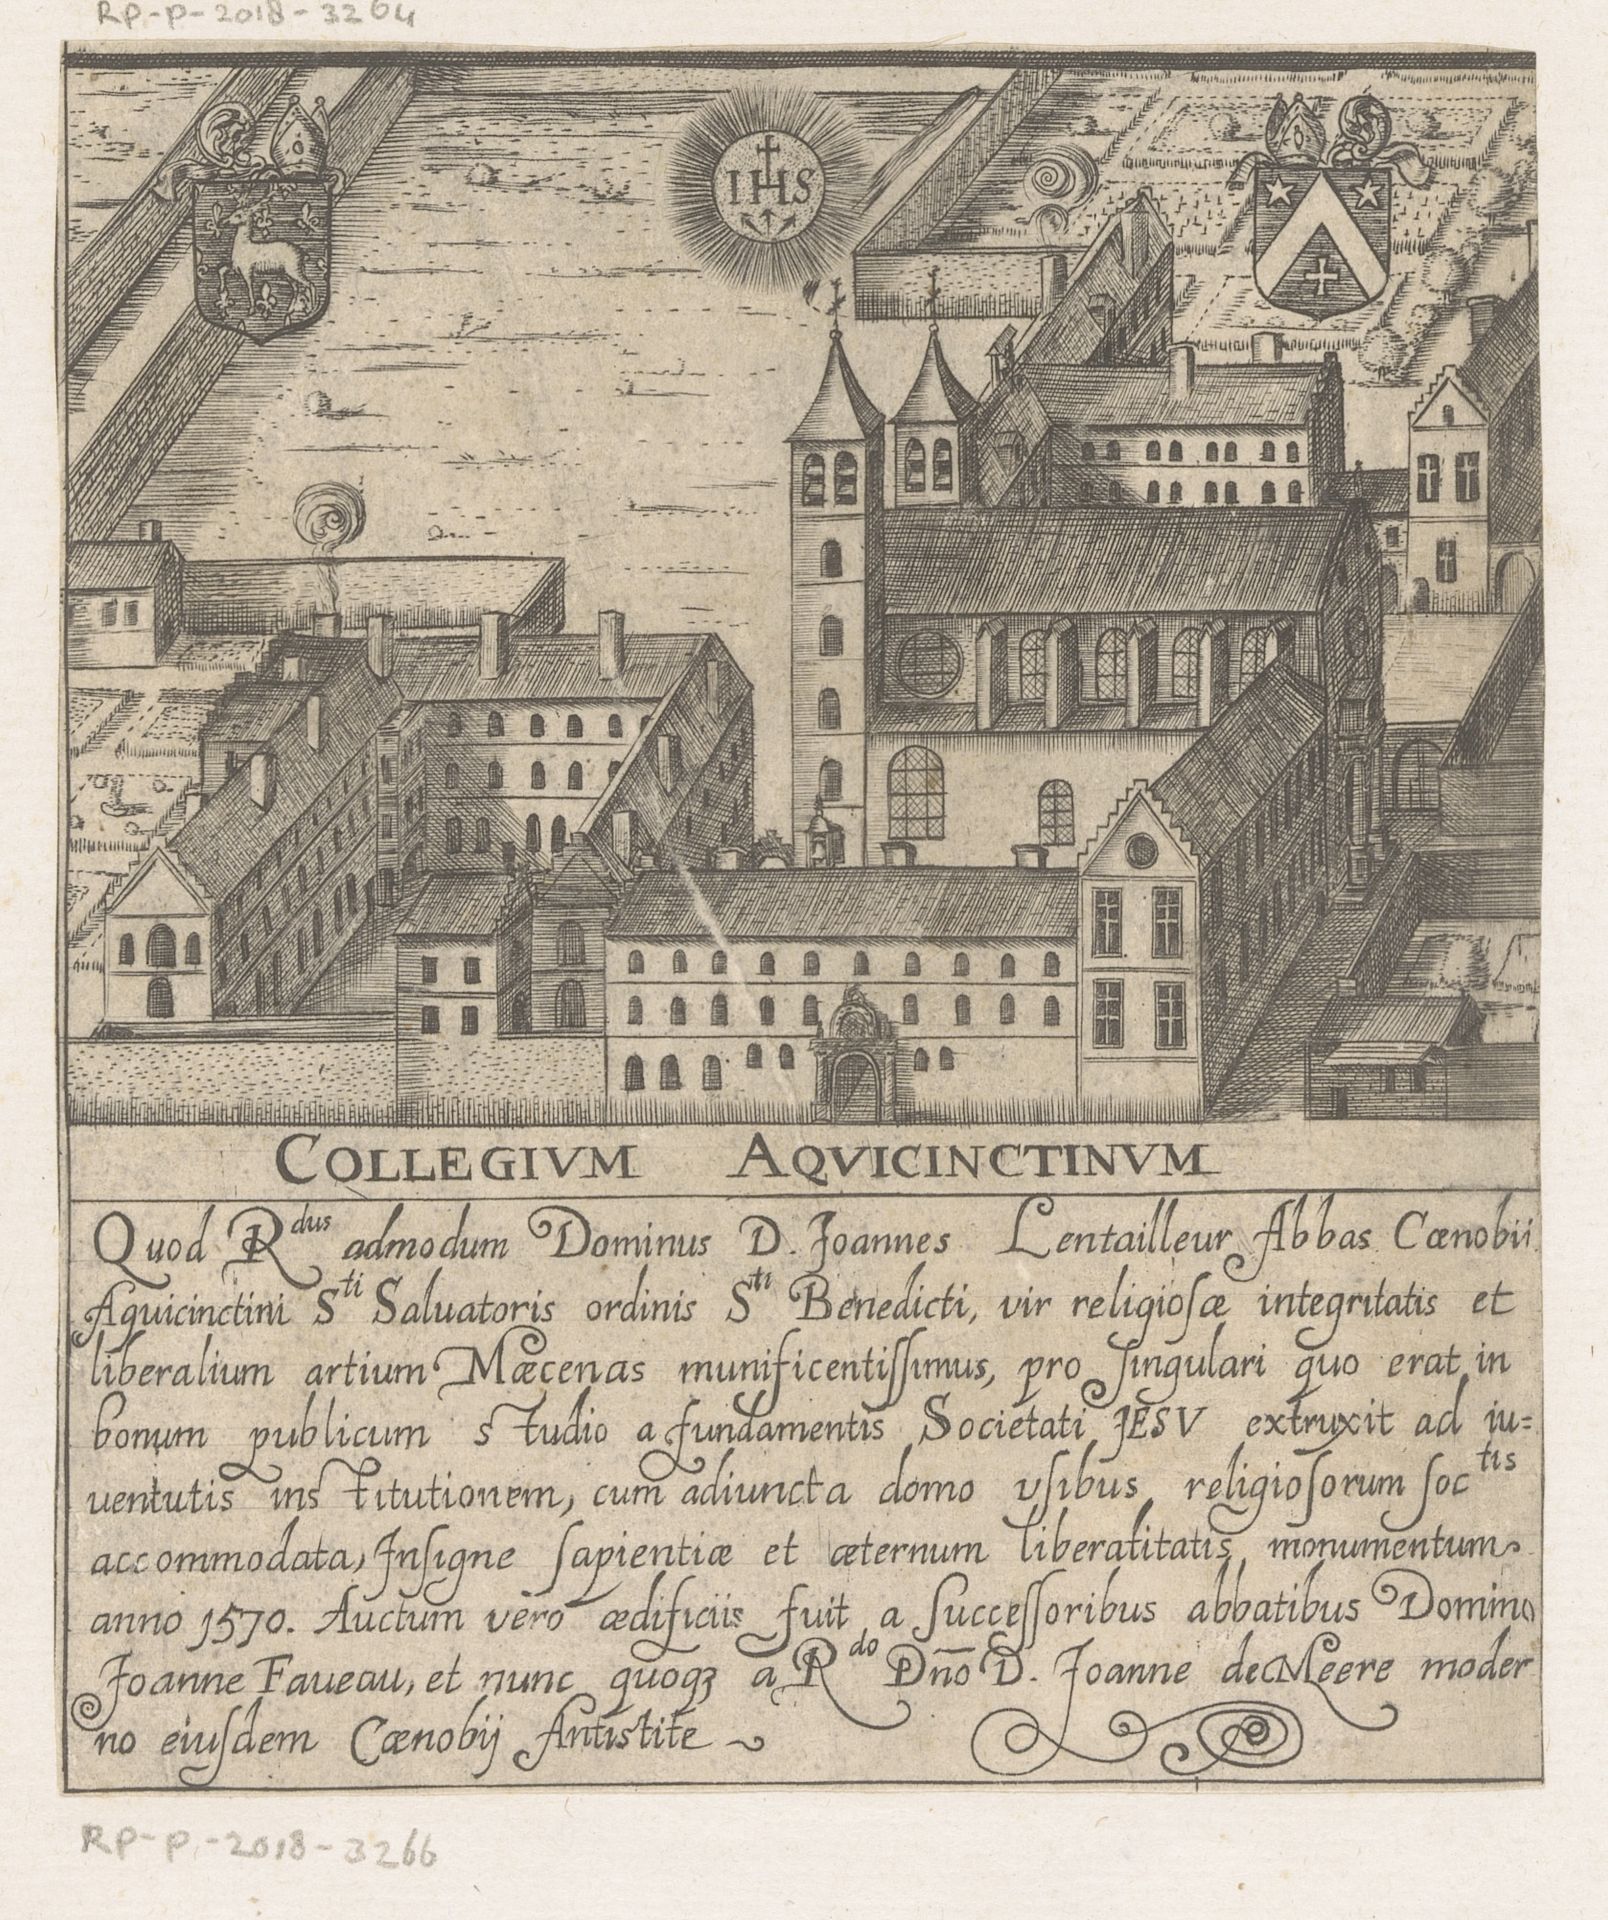 RP-P-2018-3264
IHS
COLLEGIVM AQVICINCTINVM
Quod R^dus admodum Dominus D. Joannes Lentailleur Abbas Cœnobii
Aquicinctini S^ti Saluatoris ordinis S^ti Benedicti, vir religioſæ integritatis et
liberalium artium Mæcenas munificentiſſimus, pro ſingulari quo erat in
bonum publicum studio a fundamentis Societati JESV extruxit ad iu=
uentutis institutionem, cum adiuncta domo vſibus religioſorum ſoc^tis
accommodata, Inſigne ſapientiæ et æternum liberatitatis monumentum
anno 1570. Auctum vero ædificiis fuit a ſucceſſoribus abbatibus Domino
Joanne Faueau, et nunc quoqꝫ a R^do Dn̄o D. Joanne de Meere moder
no eiuſdem Cœnobij Antistite
RP-P-2018-3266